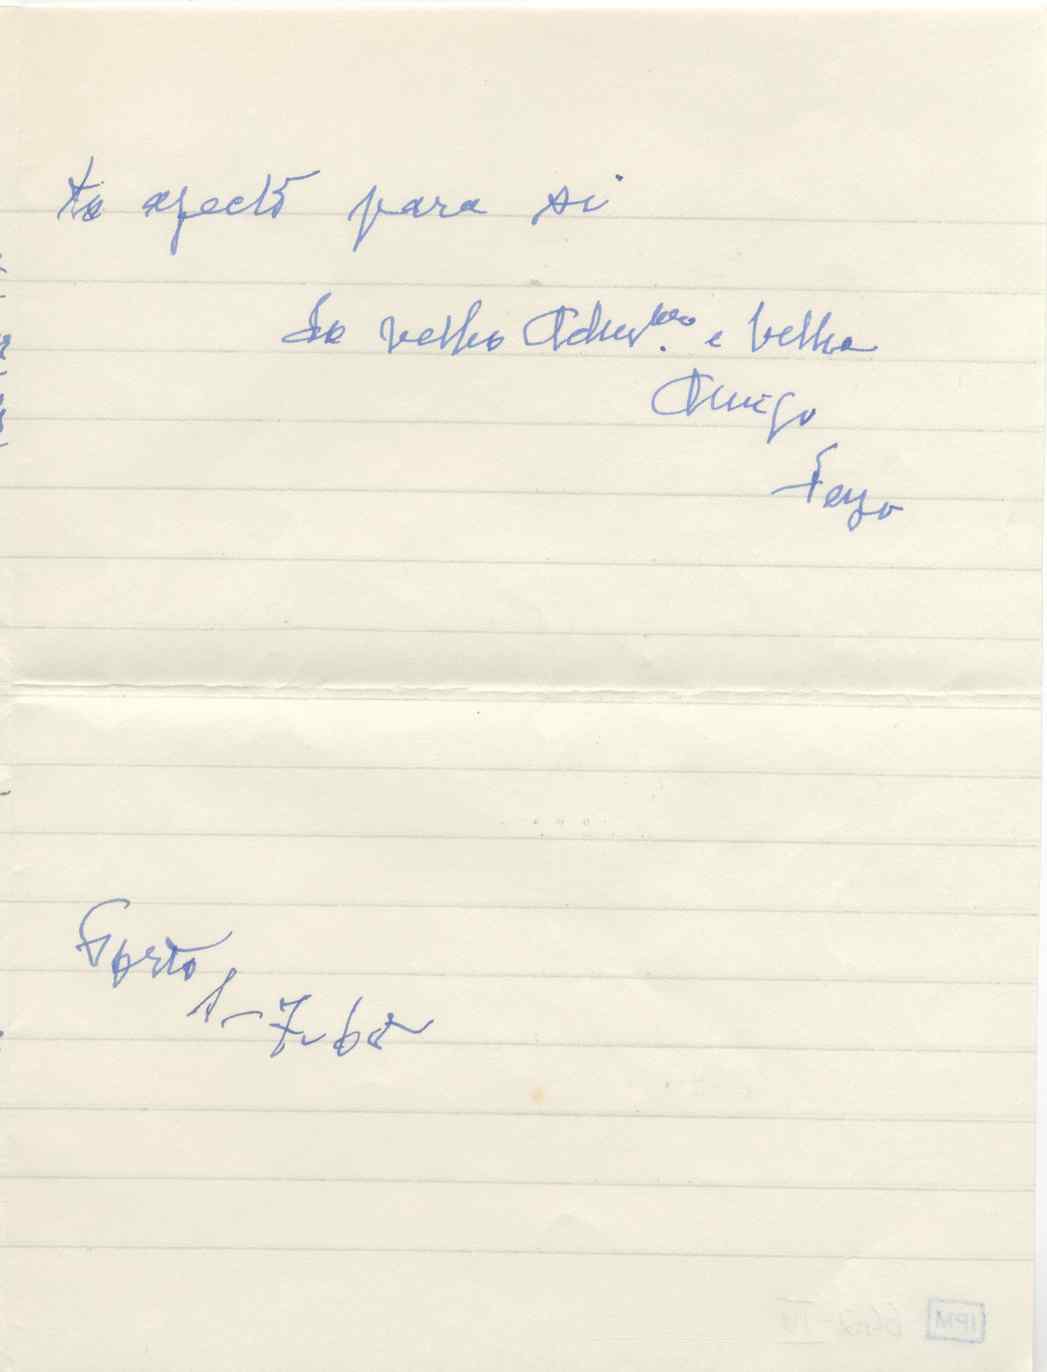 to afecto para si
do velho Adm.dor e velho
Amigo
Feyo
Porto
1-7-62